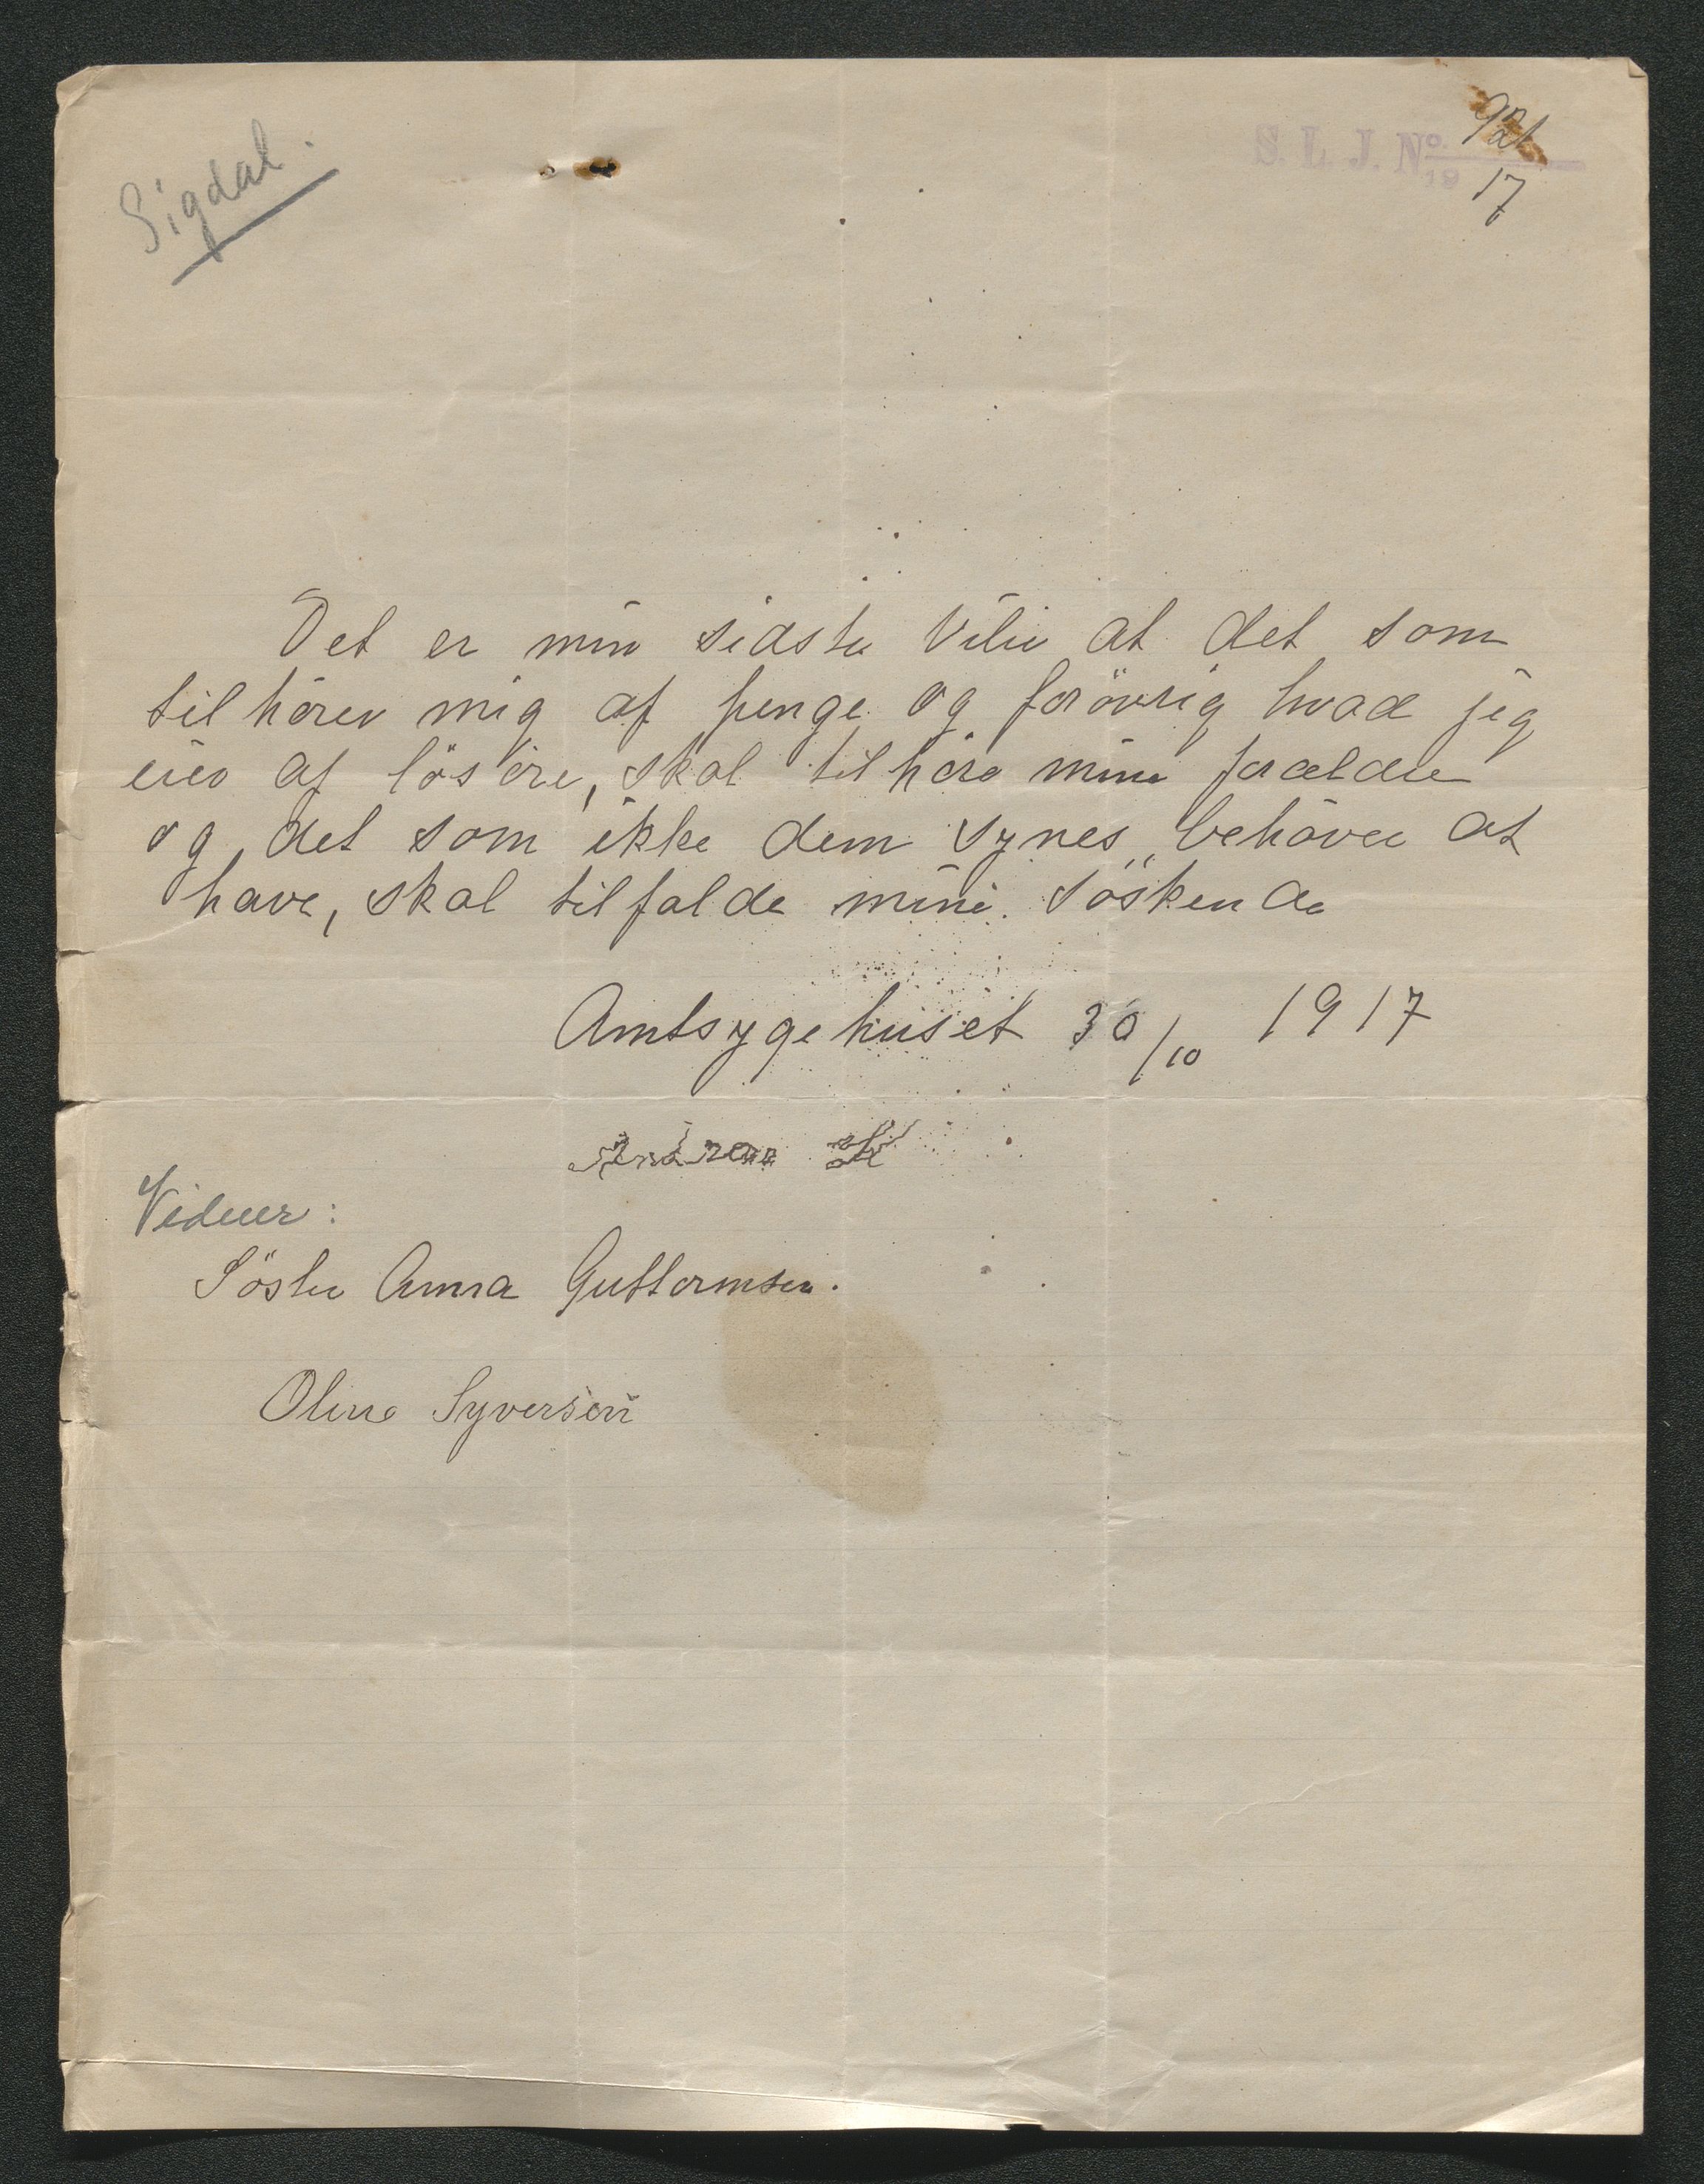 Sigdal.
S. L. J. No 921
19 17
Det er min sidste Vilie at det som
tilhörer mig af penge og forövrig hvad jeg
eier af lösöre, skal tilhöre mine forældre
og det som ikke dem synes behöver at
have, skal tilfalde mine Söskende
Amtsygehuset 30/10 1917
Vidner:
Söster Anna Guttormsen.
Oline Syversen